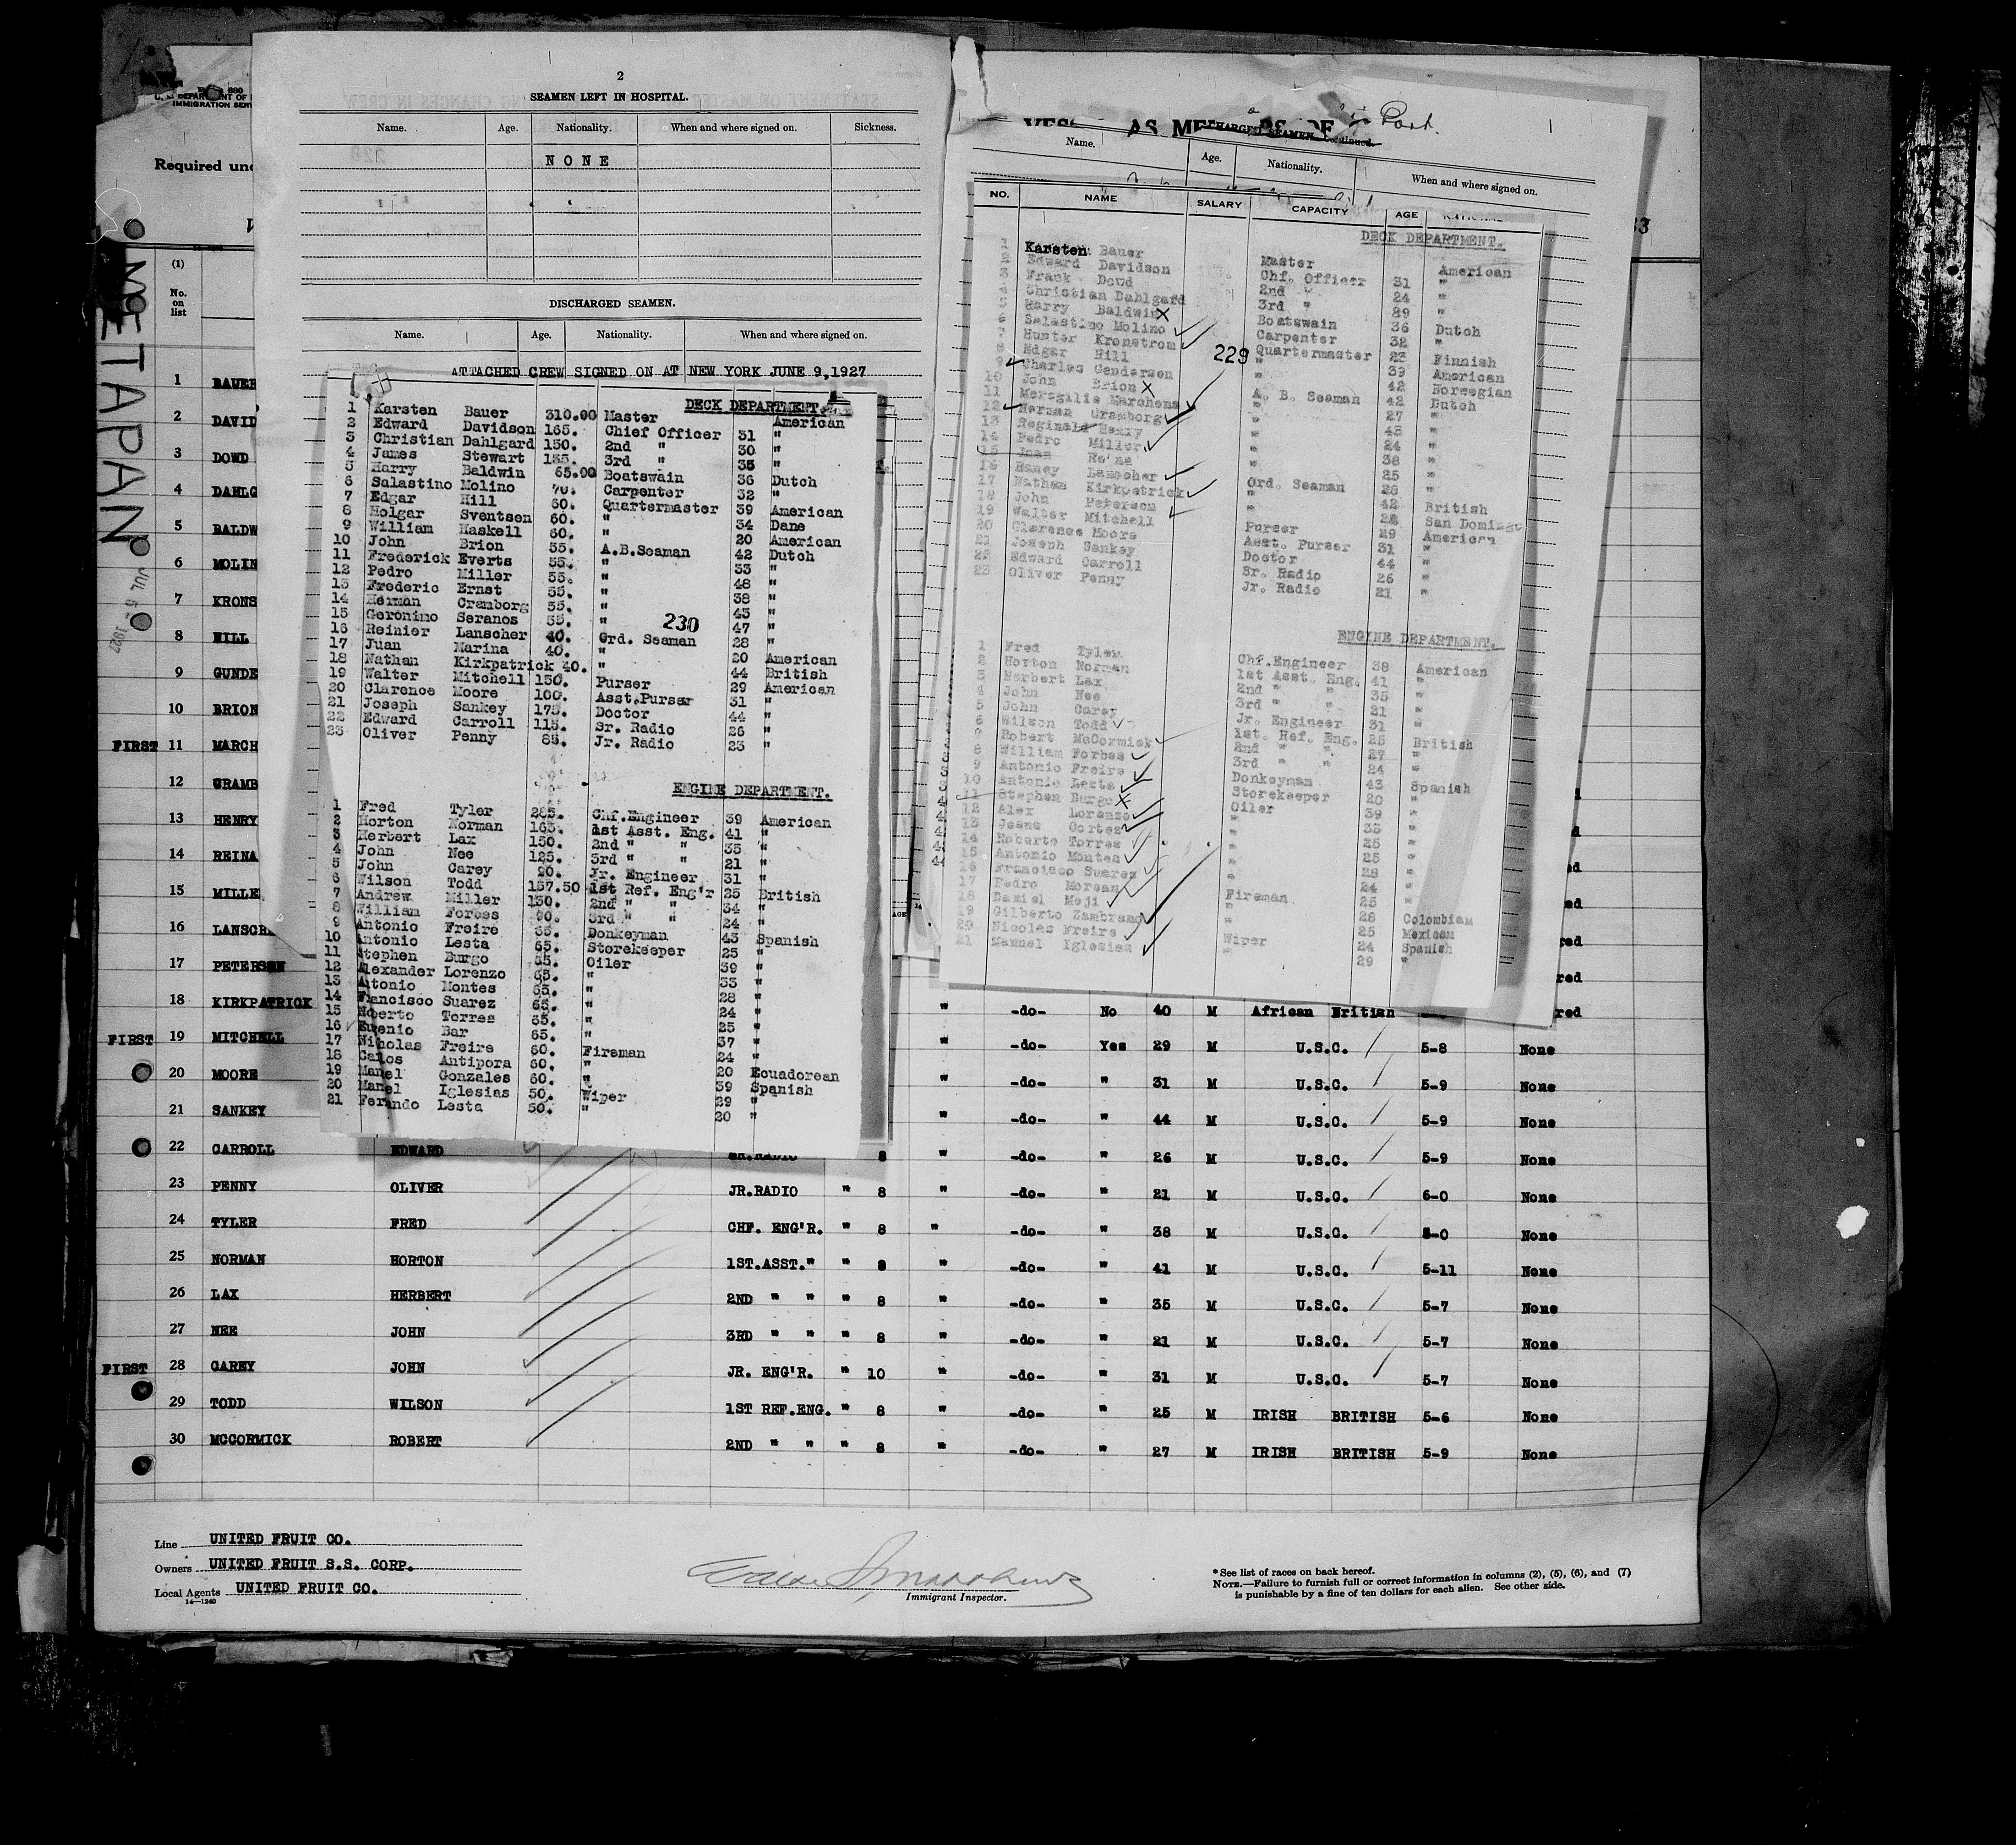 2
SEAMEN LEFT IN HOSPITAL.
Name. Age. Nationality. When and where signed on. Sickness.
NONE
DISCHARGED SEAMEN.
Name. Age. Nationality. When and where signed on.
ATTACHED CREW SIGNED ON AT NEW YORK JUNE 9,1927
DECK DEPARTMENT.
1 Karsten Bauer 310.00 Master American
2 Edward Davidson 165. Chief Officer 31 "
3 Christian Dahlgard 150. 2nd " 30 "
4 James Stewart 135. 3rd " 35 "
5 Harry Baldwin 65.00 Boatswain 36 Dutch
6 Salastino Molino 70. Carpenter 32 "
7 Edgar Hill 60. Quartermaster 39 American
8 Holgar Sventsen 60. " 34 Dane
9 William Haskell 60. " 20 American
10 John Brion 55. A.B.Seaman 42 Dutch
11 Frederick Everts 55. " 33 "
12 Pedro Miller 55. " 48 "
13 Frederic Ernst 55. " 38 "
14 Herman Cramborg 55. " 43 "
15 Geronimo Seranos 55. " 47 "
230
16 Reinier Lanscher 40. Ord. Seaman 28 "
17 Juan Marina 40. " 20 American
18 Nathan Kirkpatrick 40. " 44 British
19 Walter Mitchell 150. Purser 29 American
20 Clarence Moore 100. Asst.Purser 31 "
21 Joseph Sankey 175. Doctor 44 "
22 Edward Carroll 115. Sr. Radio 26 "
23 Oliver Penny 85. Jr. Radio 23 "
ENGINE DEPARTMENT.
1 Fred Tyler 285. Chf.Engineer 39 American
2 Horton Norman 165. 1st Asst. Eng. 41 "
3 Herbert Lax 150. 2nd " " 35 "
4 John Nee 125. 3rd " " 21 "
5 John Carey 90. Jr. Engineer 31 "
6 Wilson Todd 157.50 1st Ref. Eng'r 25 British
7 Andrew Miller 130. 2nd " " 34 "
8 William Forbes 90. 3rd " " 24 "
9 Antonio Freire 65. Donkeyman 43 Spanish
10 Antonio Lesta 65. Storekeeper 25 "
11 Stephen Burgo 65. Oiler 39 "
12 Alexander Lorenzo 65. " 33 "
13 Antonio Montes 65. " 28 "
14 Francisco Suarez 65. " 24 "
15 Roberto Torres 65. " 25 "
16 Eugenio Bar 65. " 37 "
17 Nicholas Freire 60. Fireman 24 "
18 Carlos Antipora 60. " 20 Ecuadorean
19 Manel Gonzales 60. " 39 Spanish
20 Manel Iglesias 50. Wiper 29 "
21 Ferando Lesta 50. " 20 "
Name. Age. Nationality. When and where signed on.
NO. NAME SALARY CAPACITY AGE
DECK DEPARTMENT.
1 Karsten Bauer Master American
2 Edward Davidson Chf. Officer 31 "
3 Frank Dowd 2nd " 24 "
4 Christian Dahlgard 3rd " 29 "
5 Harry Baldwin Boatswain 36 Dutch
6 Salastino Molino Carpenter 32 "
7 Hunter Kronstrom Quartermaster 23 Finnish
229
8 Edgar Hill " 39 American
9 Charles Genderson " 42 Norwegian
10 John Brion A. B. Seaman 42 Dutch
11 Meregilis Marchena " 27 "
12 Herman Gramborg " 43 "
13 Reginald Henry " 24 "
14 Pedro Miller " 38 "
15 Juan Reina " 25 "
16 Haney Lanscher Ord. Seaman 28 "
17 Nathan Kirkpatrick " 42 British
18 John Peterson " 22 San Domingo
19 Walter Mitchell Purser 29 American
20 Clarence Moore Asst. Purser 31 "
21 Joseph Sankey Doctor 44 "
22 Edward Carroll Sr. Radio 26 "
23 Oliver Penny Jr. Radio 21 "
ENGINE DEPARTMENT.
1 Fred Tyler Chf.Engineer 38 American
2 Horton Norman 1st Asst. Eng. 41 "
3 Herbert Lax 2nd " " 35 "
4 John Nee 3rd " " 21 "
5 John Carey Jr. Engineer 31 "
6 Wilson Todd 1st. Ref. Eng. 25 British
7 Robert McCormick 2nd " " 27 "
8 William Forbes 3rd " " 24 "
9 Antonio Freire Donkeyman 43 Spanish
10 Antonio Lesta Storekeeper 20 "
11 Stephen Burgo Oiler 39 "
12 Alex Lorenzo " 33 "
13 Jesus Cortez " 25 "
14 Roberto Torres " 25 "
15 Antonio Montes " 28 "
16 Francisco Suarez " 24 "
17 Pedro Morean Fireman 25 "
18 Daniel Meji " 28 Colombian
19 Gilberto Zambrano " 25 Mexican
20 Nicolas Freire " 24 Spanish
21 Manuel Iglesias Wiper 29 "
IMMIGRATION SERV
Required und
METAPAN
JUL 5 1927
(1)
No. on list
1 BAUER
2 DAVID
3 DOWD
4 DAHLG
5 BALDW
6 MOLIN
7 KRONS
8 HILL
9 GUNDE
10 BRION
FIRST 11 MARCH
12 GRAMB
13 HENRY
14 REINA
15 MILLE
16 LANSCH
17 PETERSON
18 KIRKPATRICK " -do- No 40 M African British red
FIRST 19 MITCHELL " -do- Yes 29 M U.S.C. 5-8 None
20 MOORE " -do- " 31 M U.S.C. 5-9 None
21 SANKEY " -do- " 44 M U.S.C. 5-9 None
22 CARROLL EDWARD SR.RADIO 8 " -do- " 26 M U.S.C. 5-9 None
23 PENNY OLIVER JR.RADIO " 8 " -do- " 21 M U.S.C. 6-0 None
24 TYLER FRED CHF. ENG'R. " 8 " -do- " 38 M U.S.C. 6-0 None
25 NORMAN HORTON 1ST.ASST." " 8 " -do- " 41 M U.S.C. 5-11 None
26 LAX HERBERT 2ND " " " 8 " -do- " 35 M U.S.C. 5-7 None
27 NEE JOHN 3RD " " " 8 " -do- " 21 M U.S.C. 5-7 None
FIRST 28 CAREY JOHN JR. ENG'R. " 10 " -do- " 31 M U.S.C. 5-7 None
29 TODD WILSON 1ST REF.ENG. " 8 " -do- " 25 M IRISH BRITISH 5-6 None
30 MCCORMICK ROBERT 2ND " " " 8 " -do- " 27 M IRISH BRITISH 5-9 None
Line UNITED FRUIT CO.
Owners UNITED FRUIT S.S. CORP.
Local Agents UNITED FRUIT CO.
14—1240
Immigrant Inspector.
* See list of races on back hereof.
NOTE.—Failure to furnish full or correct information in columns (2), (5), (6), and (7)
is punishable by a fine of ten dollars for each alien. See other side.